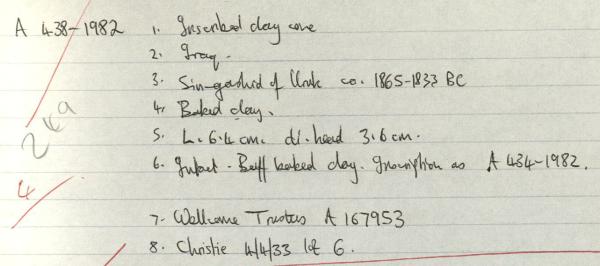 A 438-1982 1. Inscribed clay cone
2. Iraq.
3. Sin-gashid of Uruk ca. 1865-1833 BC
4. Baked clay.
5. L. 6.4 cm. d. head 3.6 cm.
249
6. Intact. Buff baked clay. Inscription as A 434-1982.
4
7. Wellcome Trustees A 167953
8. Christie 4/4/33 lot 6.